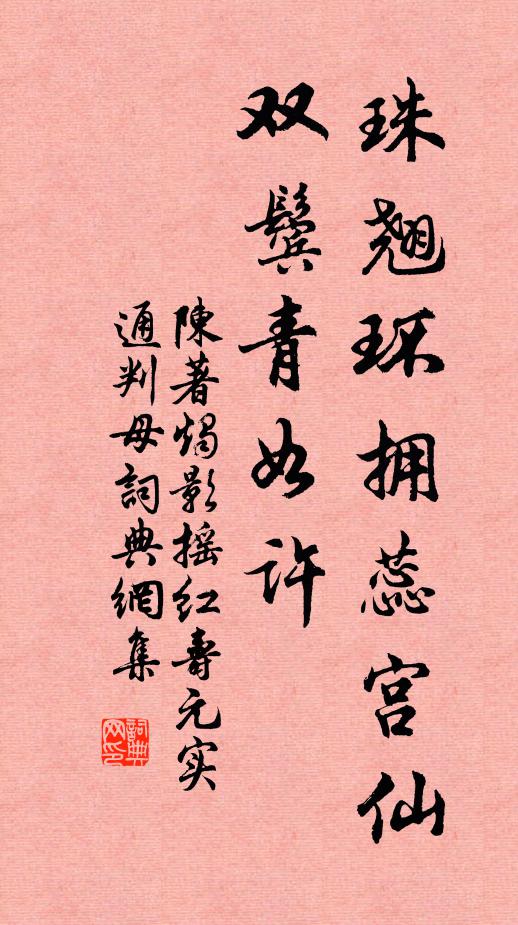 珠翘环拥蕊宫仙
双鬓青如许
陳著燭影摇红壽元实
通判母詞典網集
詞典网印